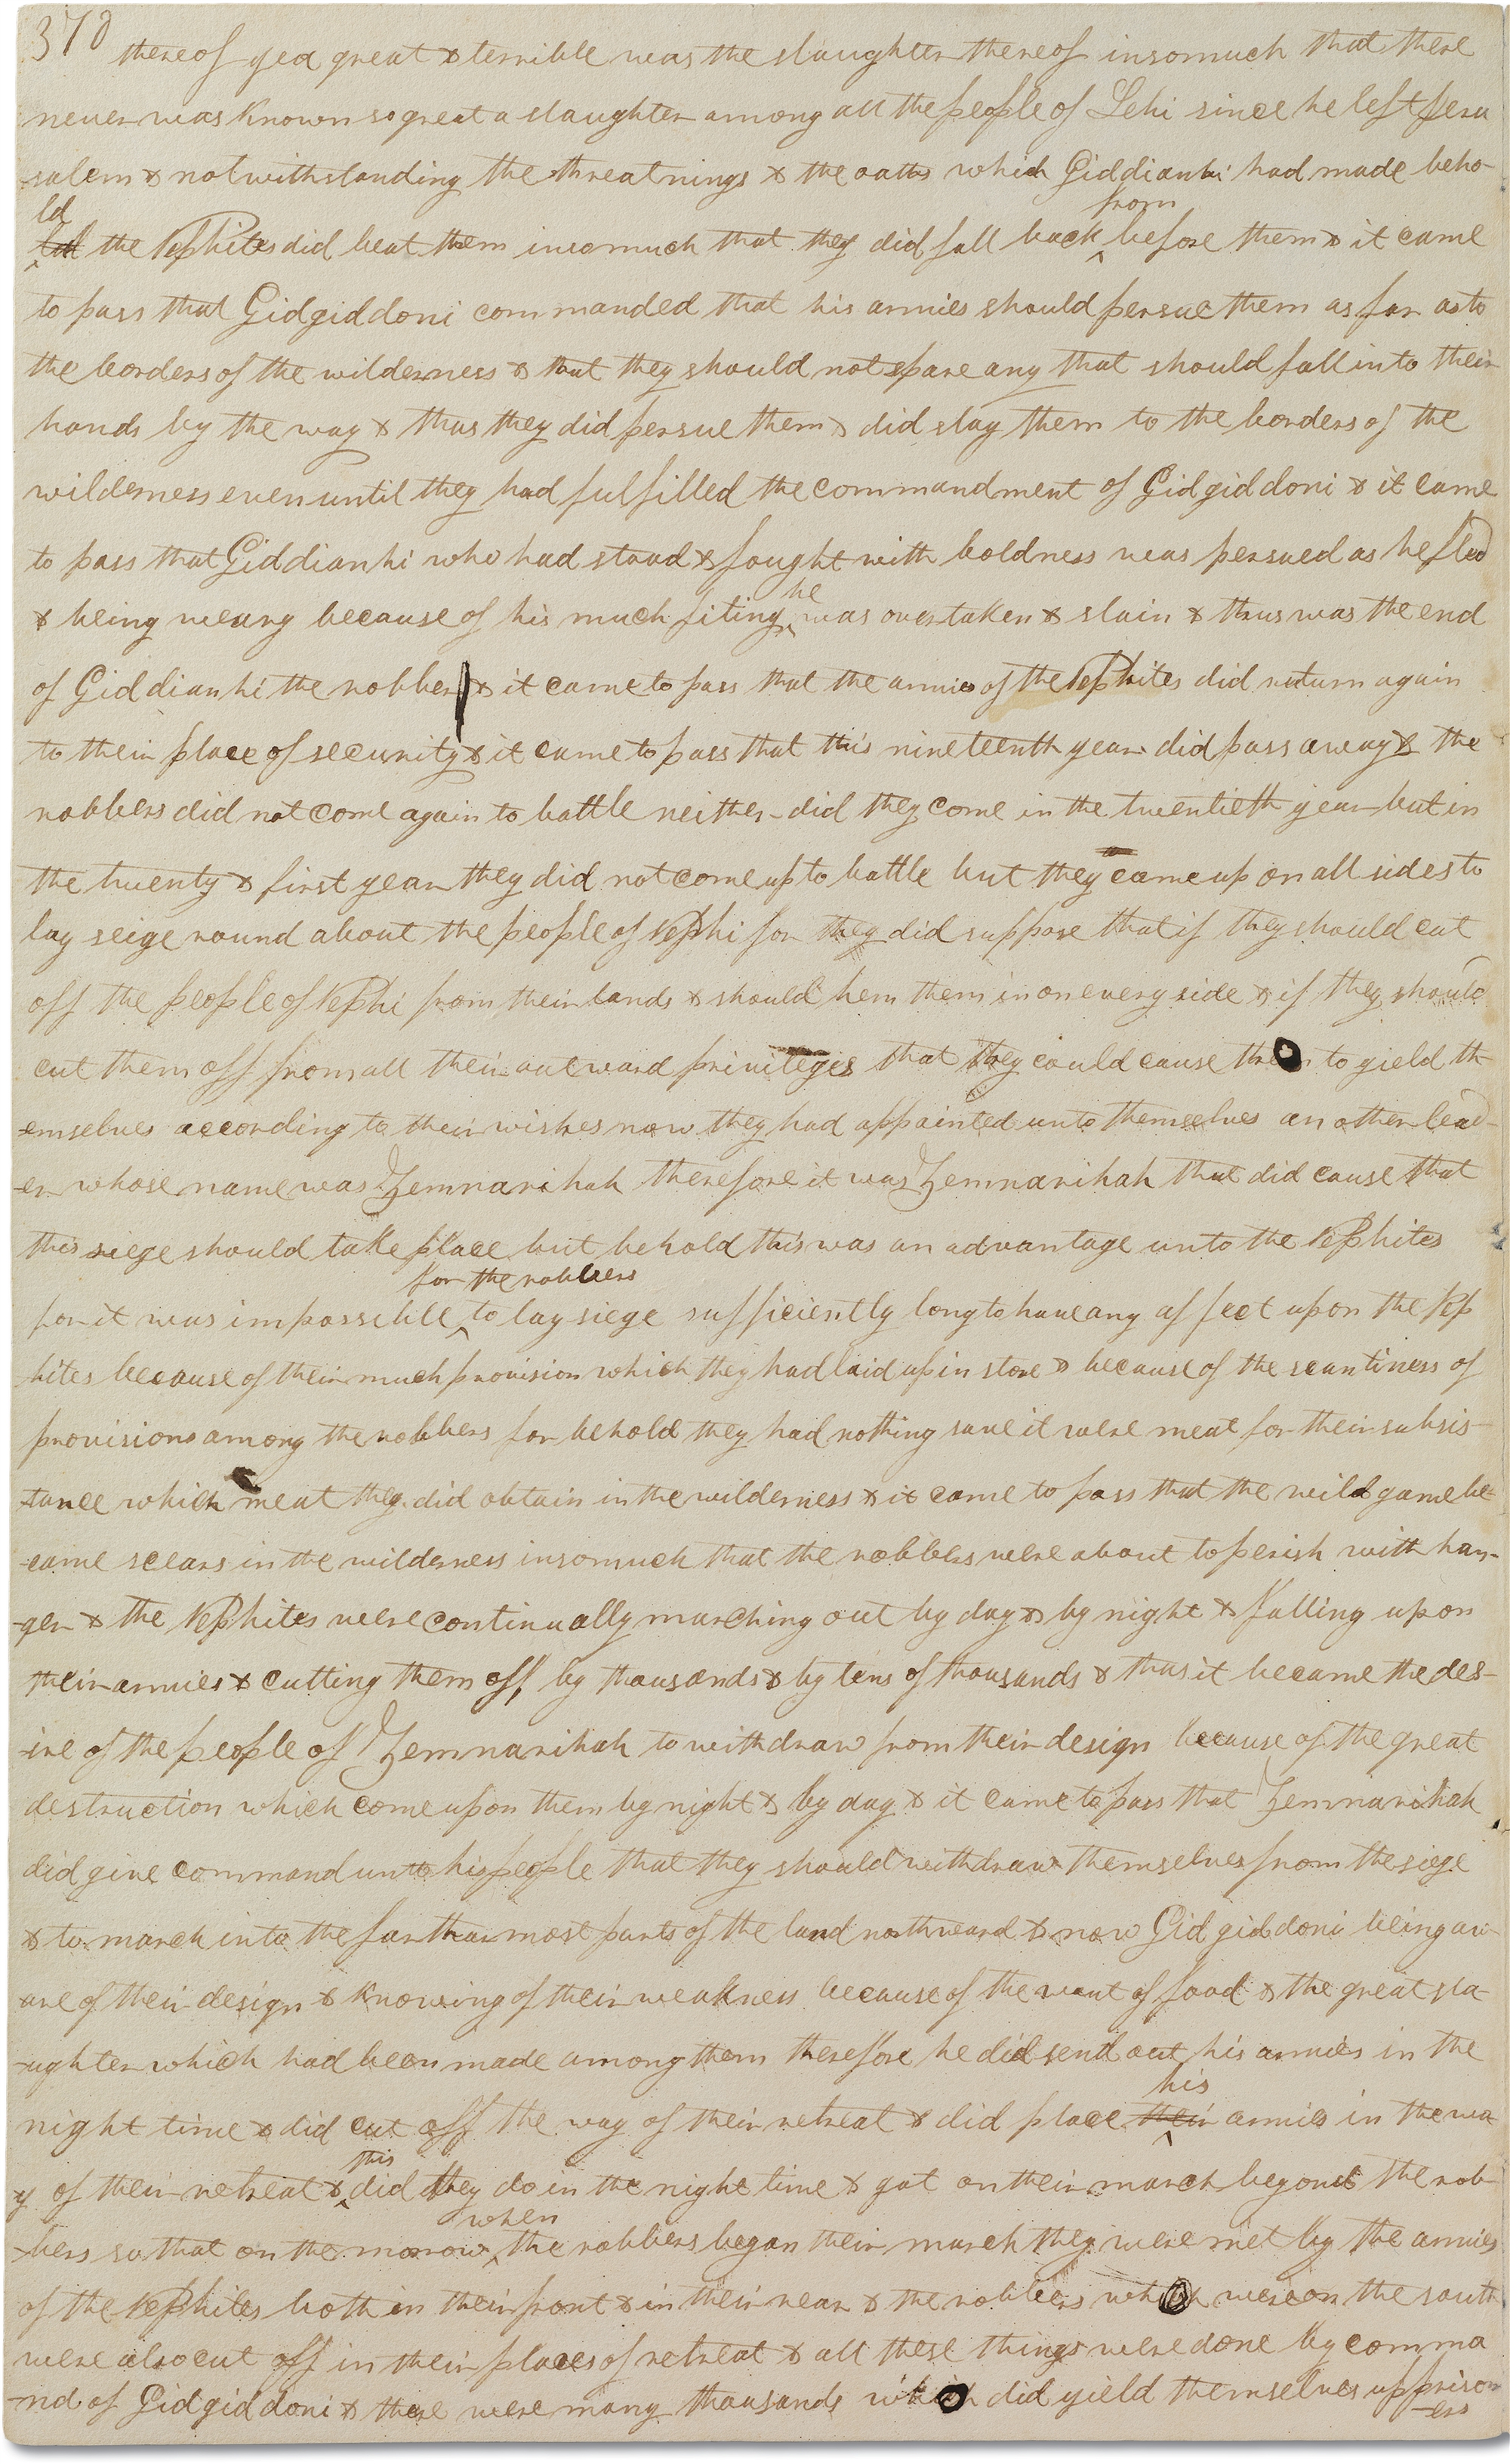 370
thereof yea great & terrible was the slaughter thereof insomuch that there
never was known so great a slaughter among all the people of Lehi since he left Jeru
-salem & notwithstanding the threatnings & the oaths which Giddianhi had made beho-
ld
the Nephites did beat them insomuch that they did fall back from before them & it came
to pass that Gidgiddoni commanded that his armies should persue them as far as to
the borders of the wilderness & that they should not spare any that should fall into their
hands by the way & thus they did persue them & did slay them to the borders of the
wilderness even until they had fulfilled the commandment of Gidgiddoni & it came
to pass that Giddianhi who had stood & fought with boldness was persued as he fled
& being weary because of his much fiting he was overtaken & slain & thus was the end
of Giddianhi the robber & it came to pass that the armies of the Nephites did return again
to their place of security & it came to pass that this nineteenth year did pass away & the
robbers did not come again to battle neither did they come in the twentieth year but in
the twenty & first year they did not come up to battle but they came up on all sides to
lay seige round about the people of Nephi for they did suppose that if they should cut
off the people of Nephi from their lands & should hem them in on every side & if they should
cut them off from all their outward privileges that they could cause them to yield th-
-emselves according to their wishes now they had appointed unto themselves another lead-
-er whose name was Zemnarihah therefore it was Zemnarihah that did cause that
this siege should take place but behold this was an advantage unto the Nephites
for it was impossible for the robbers to lay siege sufficiently long to have any affect upon the Nep
hites because of their much provision which they had laid up in store & because of the scantiness of
provisions among the robbers for behold they had nothing save it were meat for their subsis-
-tance which meat they did obtain in the wilderness & it came to pass that the wild game be-
-came scears in the wilderness insomuch that the robbers were about to perish with hun-
-ger & the Nephites were continually marching out by day & by night & falling upon
their armies & cutting them off by thousands & by tens of thousands & thus it became the des-
-ire of the people of Zemnarihah to withdraw from their design because of the great
destruction which come upon them by night & by day & it came to pass that Zemnarihah
did give command unto his people that they should withdraw themselves from the siege
& to march into the farthermost parts of the land northward & now Gidgiddoni being aw-
are of their design & knowing of their weakness because of the want of food & the great sla-
-ughter which had been made among them therefore he did send out his armies in the
night time & did cut off the way of their retreat & did place their his armies in the wa
y of their retreat & this did they do in the night time & got on their march beyond the rob-
-bers so that on the morrow when the robbers began their march they were met by the armies
of the Nephites both in their front & in their rear & the robbers which were on the south
were also cut off in their places of retreat & all these things were done by comma
-nd of Gidgiddoni & there were many thousands which did yield themselves up prison
-ers